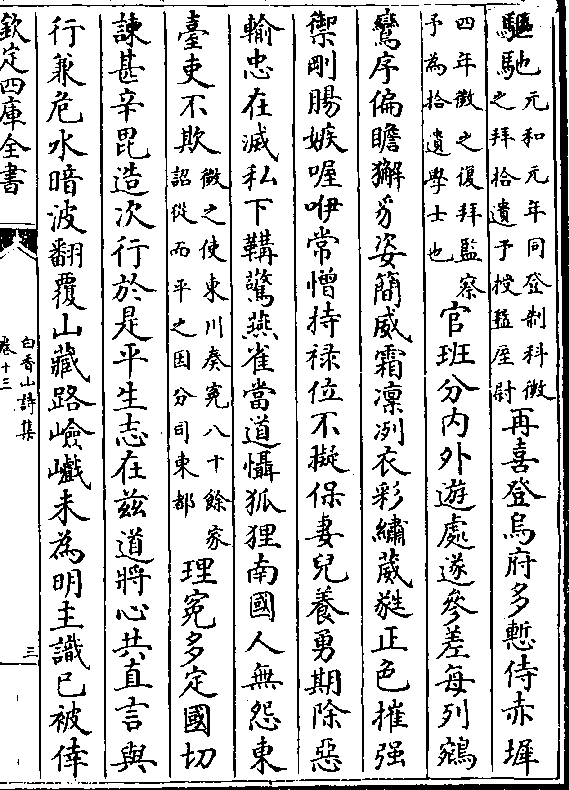 驅馳元和元年同登制科微之拜拾遺予授盩厔尉再喜登烏府多慙侍赤墀
四年微之復拜監察予為拾遺學士也官班分内外遊處遂參差每列鵷
鸞序偏瞻獬豸姿簡威霜凛冽衣彩繡葳蕤正色摧强
禦剛腸嫉喔咿常憎持禄位不擬保妻兒養勇期除惡
輸忠在滅私下鞲驚燕雀當道懾狐狸南國人無怨東
臺吏不欺微之使東川奏寃八十餘家詔從而平之因分司東都理寃多定國切
諫甚辛毘造次行於是平生志在兹道將心共直言與
行兼危水暗波翻覆山藏路嶮巇未為明主識已被倖
欽定四庫全書
白香山詩集
卷十三
三